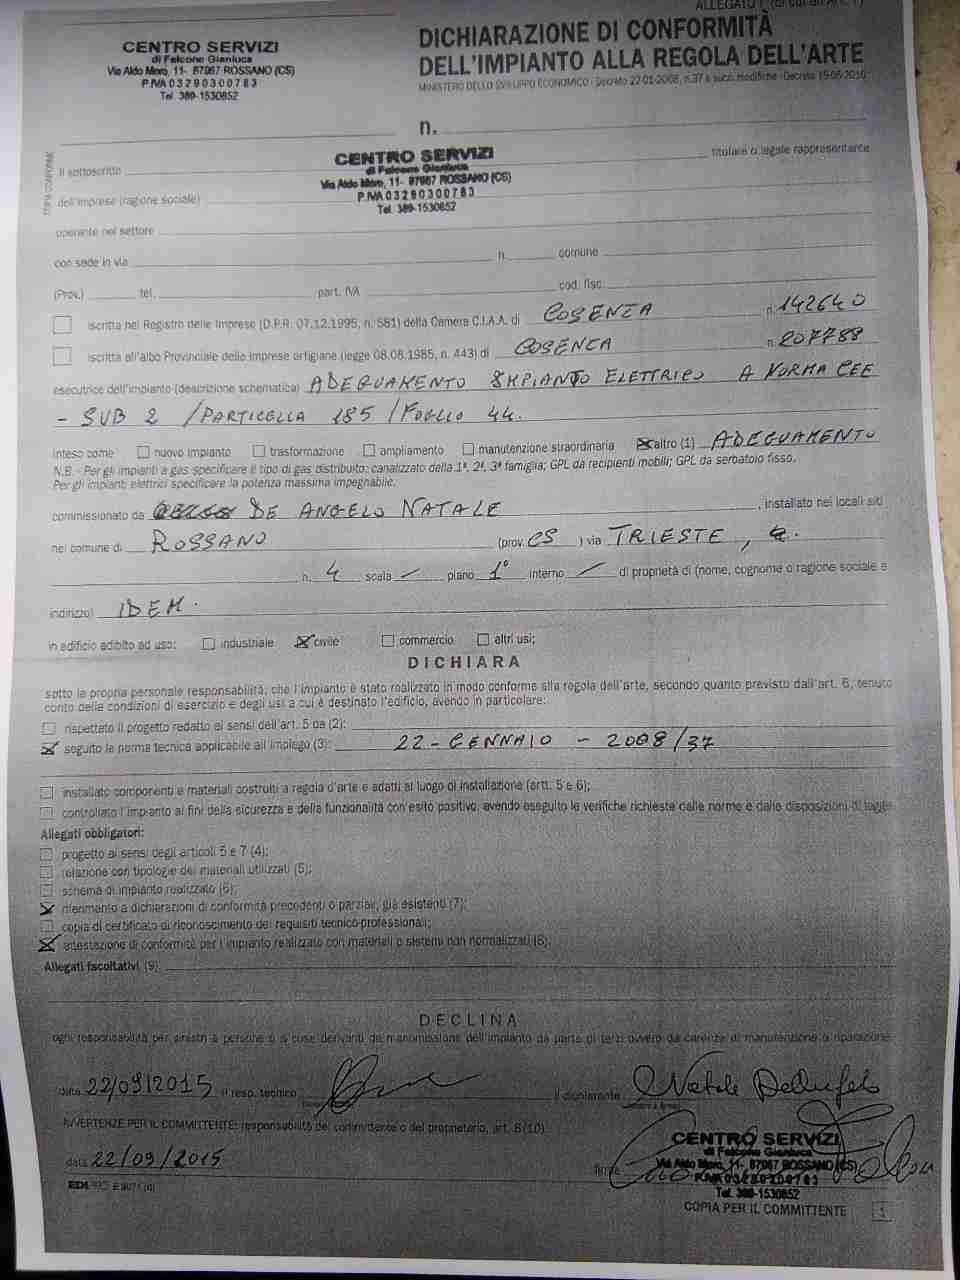 ALLEGATO I (di cui all'Art. 7)
CENTRO SERVIZI
di Falcone Gianluca
Via Aldo Moro, 11- 87067 ROSSANO (CS)
P.IVA 03290300783
Tel. 389-1530652
DICHIARAZIONE DI CONFORMITÀ
DELL'IMPIANTO ALLA REGOLA DELL'ARTE
MINISTERO DELLO SVILUPPO ECONOMICO - Decreto 22-01-2008, n.37 e succ. modifiche - Decreto 19-05-2010
n.
Il sottoscritto
titolare o legale rappresentante
CENTRO SERVIZI
di Falcone Gianluca
Via Aldo Moro, 11- 87067 ROSSANO (CS)
P.IVA 03290300783
Tel. 389-1530652
dell'impresa (ragione sociale)
operante nel settore
con sede in via n. comune
(Prov.) tel. part. IVA cod. fisc.
iscritta nel Registro delle Imprese (D.P.R. 07.12.1995, n. 581) della Camera C.I.A.A. di COSENZA n. 142640
iscritta all'albo Provinciale delle imprese artigiane (legge 08.08.1985, n. 443) di COSENZA n. 207788
esecutrice dell'impianto (descrizione schematica) ADEGUAMENTO IMPIANTO ELETTRICO A NORMA CEE
- SUB 2 / PARTICELLA 185 / FOGLIO 44.
inteso come nuovo impianto trasformazione ampliamento manutenzione straordinaria altro (1) ADEGUAMENTO
N.B. - Per gli impianti a gas specificare il tipo di gas distribuito: canalizzato della 1ª, 2ª, 3ª famiglia; GPL da recipienti mobili; GPL da serbatoio fisso.
Per gli impianti elettrici specificare la potenza massima impegnabile.
commissionato da DE ANGELO NATALE, installato nei locali siti
nel comune di ROSSANO (prov. CS) via TRIESTE,
n. 4 scala / piano 1° interno / di proprietà di (nome, cognome o ragione sociale e
indirizzo) IDEM.
in edificio adibito ad uso: industriale civile commercio altri usi;
DICHIARA
sotto la propria personale responsabilità, che l'impianto è stato realizzato in modo conforme alla regola dell'arte, secondo quanto previsto dall'art. 6, tenuto
conto delle condizioni di esercizio e degli usi a cui è destinato l'edificio, avendo in particolare:
rispettato il progetto redatto ai sensi dell'art. 5 da (2):
seguito la norma tecnica applicabile all'impiego (3): 22-GENNAIO - 2008/37
installato componenti e materiali costruiti a regola d'arte e adatti al luogo di installazione (artt. 5 e 6);
controllato l'impianto ai fini della sicurezza e della funzionalità con esito positivo, avendo eseguito le verifiche richieste dalle norme e dalle disposizioni di legge.
Allegati obbligatori:
progetto ai sensi degli articoli 5 e 7 (4);
relazione con tipologie dei materiali utilizzati (5);
schema di impianto realizzato (6);
riferimento a dichiarazioni di conformità precedenti o parziali, già esistenti (7);
copia di certificato di riconoscimento dei requisiti tecnico-professionali;
attestazione di conformità per l'impianto realizzato con materiali o sistemi non normalizzati (8).
Allegati facoltativi (9)
DECLINA
ogni responsabilità per sinistri a persone o a cose derivanti da manomissione dell'impianto da parte di terzi ovvero da carenze di manutenzione o riparazione.
data 22/09/2015 il resp. tecnico il dichiarante Natale
AVVERTENZE PER IL COMMITTENTE: responsabilità del committente o del proprietario, art. 8 (10)
data 22/09/2015 firma
CENTRO SERVIZI
di Falcone Gianluca
Via Aldo Moro, 11- 87067 ROSSANO (CS)
P.IVA 03290300783
Tel. 389-1530652
COPIA PER IL COMMITTENTE 1